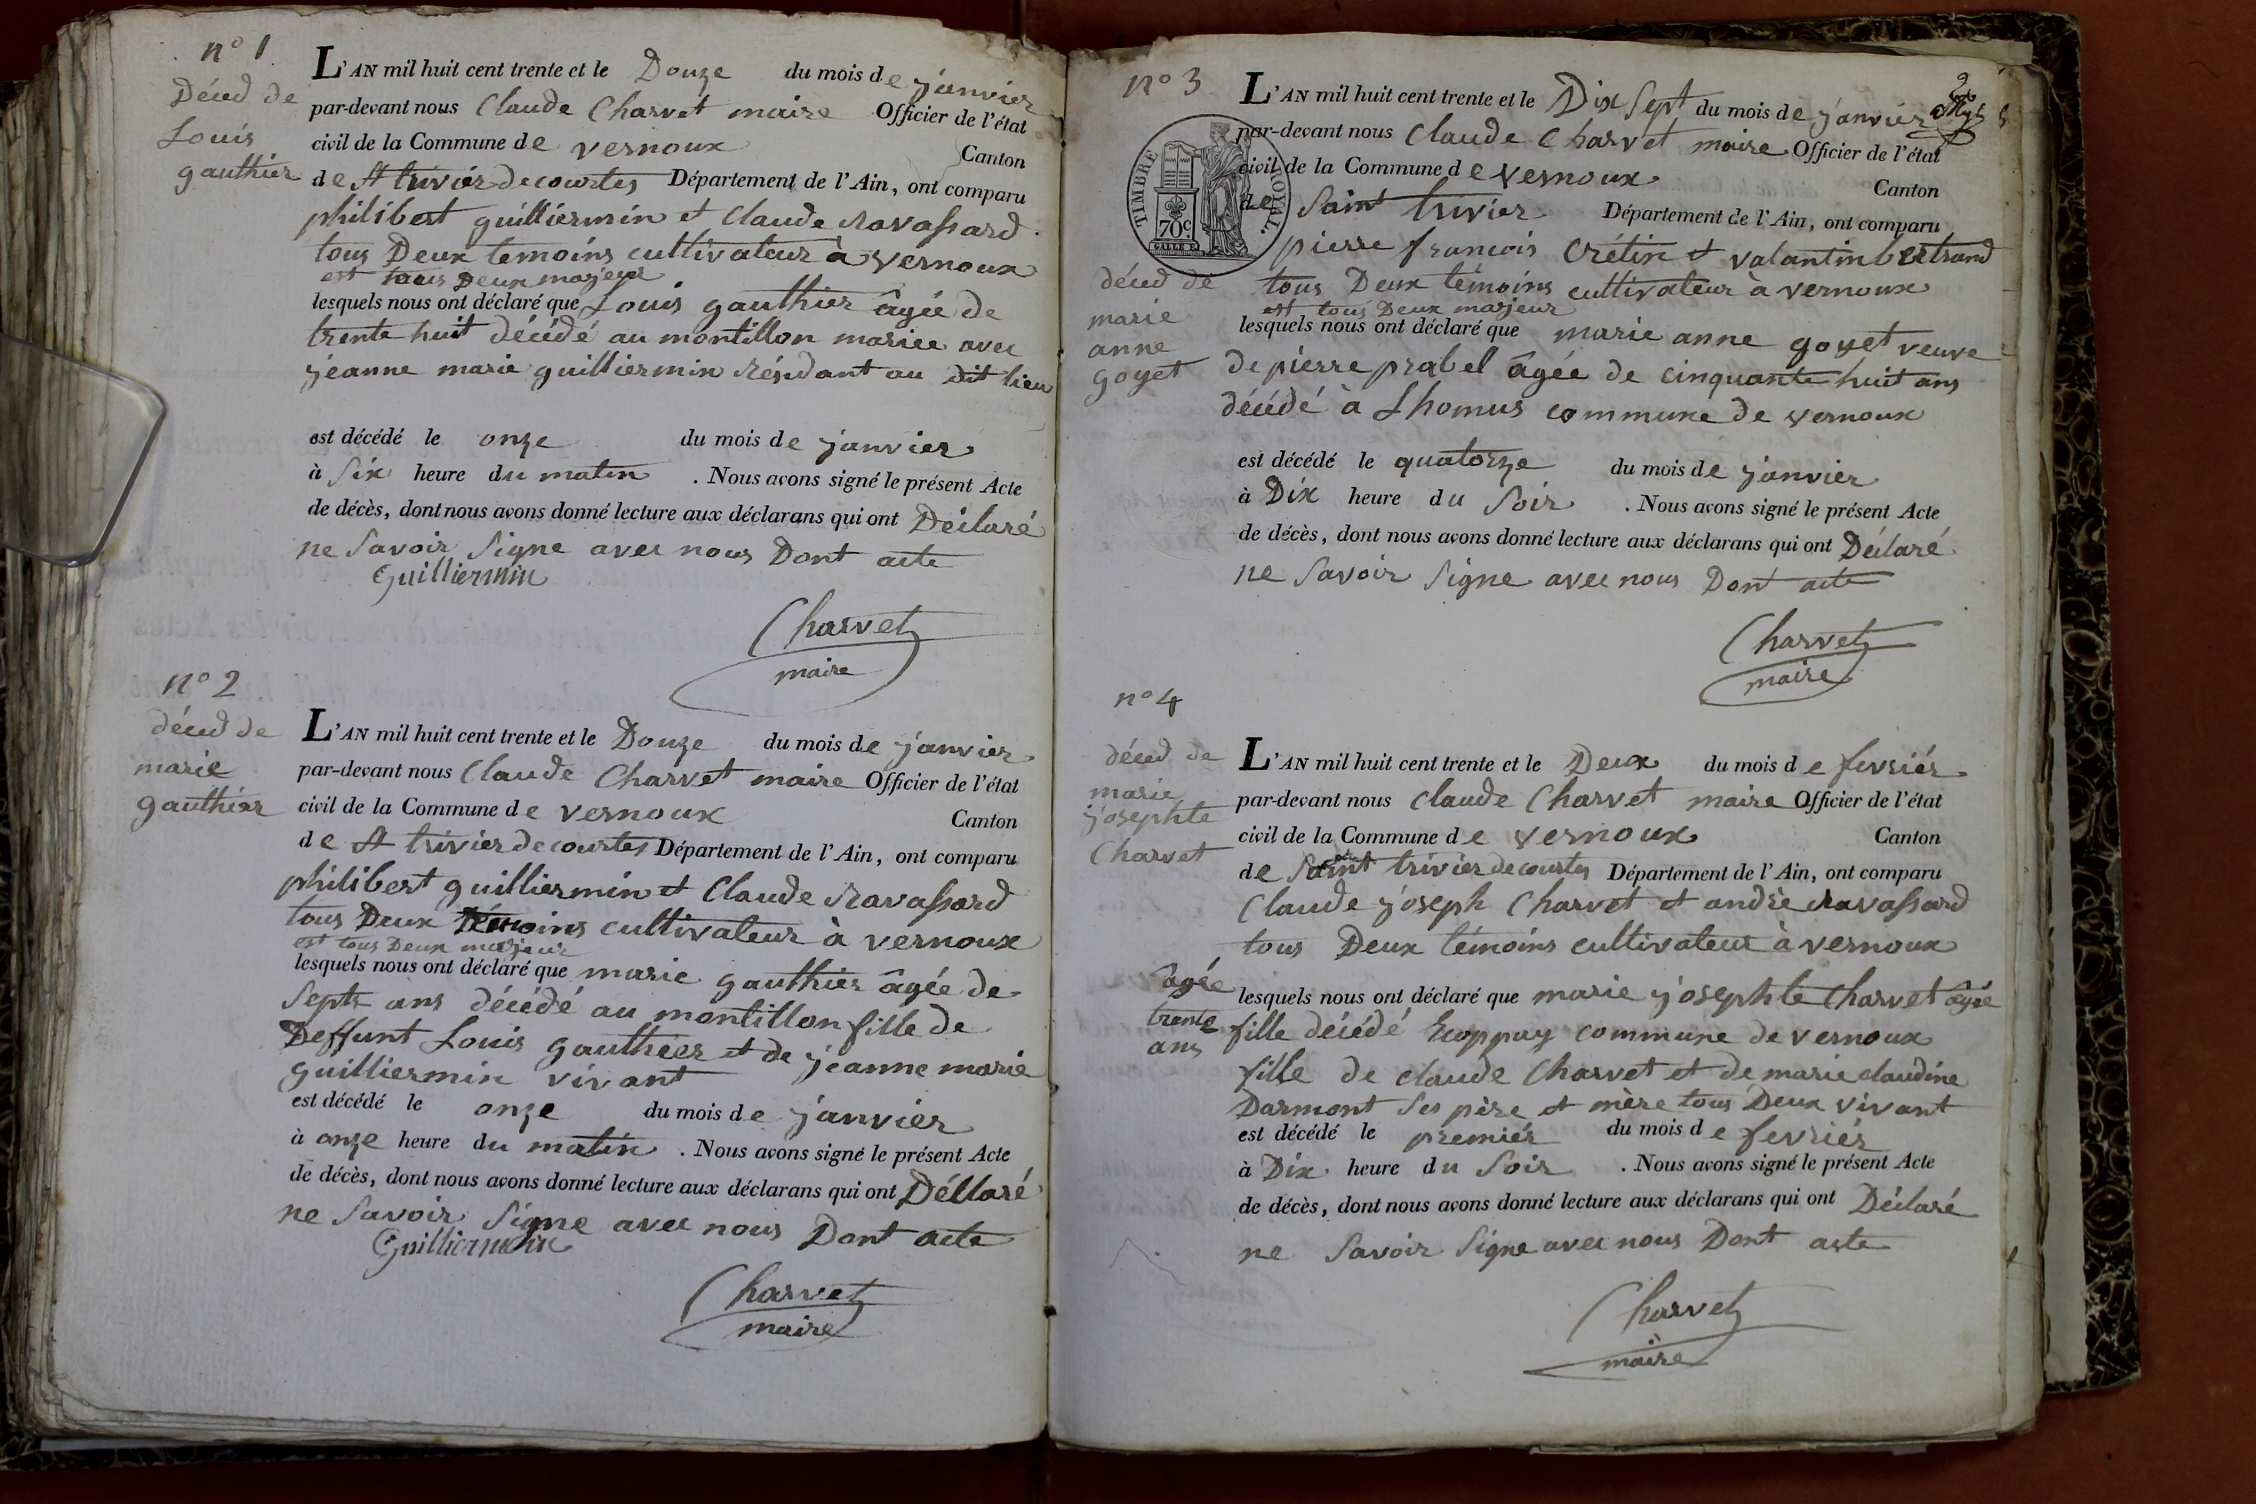 n° 1
Décéd de
Louis
gauthier
L'AN mil huit cent trente et le Douze du mois de janvier
par-devant nous Claude Charvet maire Officier de l'état
civil de la Commune de vernoux Canton
de St trivier de courtes Département de l'Ain, ont comparu
philibert guilliermin et Claude Ravassard
tous Deux temoins cultivateur à vernoux
est tous Deux majeur
lesquels nous ont déclaré que Louis gauthier âgée de
trente huit décédé au montillon mariee avec
jeanne marie guilliermin résidant au dit lieu
est décédé le onze du mois de janvier
à Six heure du matin . Nous avons signé le présent Acte
de décès, dont nous avons donné lecture aux déclarans qui ont Déclaré
ne Savoir Signe avec nous Dont acte
Guilliermin
Charvet
maire
n° 2
décéd de
marie
gauthier
L'AN mil huit cent trente et le Douze du mois de janvier
par-devant nous Claude Charvet maire Officier de l'état
civil de la Commune de vernoux Canton
de St trivier de courtes Département de l'Ain, ont comparu
philibert guilliermin et Claude Ravassard
tous Deux Témoins cultivateur à vernoux
est tous Deux majeur
lesquels nous ont déclaré que marie gauthier âgée de
Septs ans décédé au montillon fille de
Deffunt Louis gauthier et de jeanne marie
guilliermin vivant
est décédé le onze du mois de janvier
à onze heure du matin . Nous avons signé le présent Acte
de décès, dont nous avons donné lecture aux déclarans qui ont Déclaré
ne Savoir Signe avec nous Dont acte
Guilliermin
Charvet
maire
n° 3
TIMBRE ROYAL.
70c.
décéd de
marie
anne
goyet
L'AN mil huit cent trente et le Dix Sept du mois de janvier
par-devant nous Claude Charvet maire Officier de l'état
civil de la Commune de vernoux Canton
de Saint trivier Département de l'Ain, ont comparu
pierre françois Crétin et valantin bertrand
tous Deux témoins cultivateur à vernoux
est tous Deux majeur
lesquels nous ont déclaré que marie anne goyet veuve
De pierre prabel âgée de cinquante huit ans
décédé à Lhomus commune de vernoux
est décédé le quatorze du mois de janvier
à Dix heure du Soir . Nous avons signé le présent Acte
de décès, dont nous avons donné lecture aux déclarans qui ont Déclaré
ne Savoir Signe avec nous Dont acte
Charvet
maire
n° 4
décéd de
marie
josephte
Charvet
L'AN mil huit cent trente et le Deux du mois de fevriér
par-devant nous Claude Charvet maire Officier de l'état
civil de la Commune de vernoux Canton
de Saint trivier de courtes Département de l'Ain, ont comparu
Claude joseph Charvet et andré Ravassard
tous Deux témoins cultivateur à vernoux
âgée
trente
ans
lesquels nous ont déclaré que marie josephte Charvet âgée
fille décédé Ecoppay commune de vernoux
fille de claude Charvet et de marie claudine
Darmont Ses père et mère tous Deux vivant
est décédé le premiér du mois de fevriér
à Dix heure du Soir . Nous avons signé le présent Acte
de décès, dont nous avons donné lecture aux déclarans qui ont Déclaré
ne Savoir Signe avec nous Dont acte
Charvet
maire